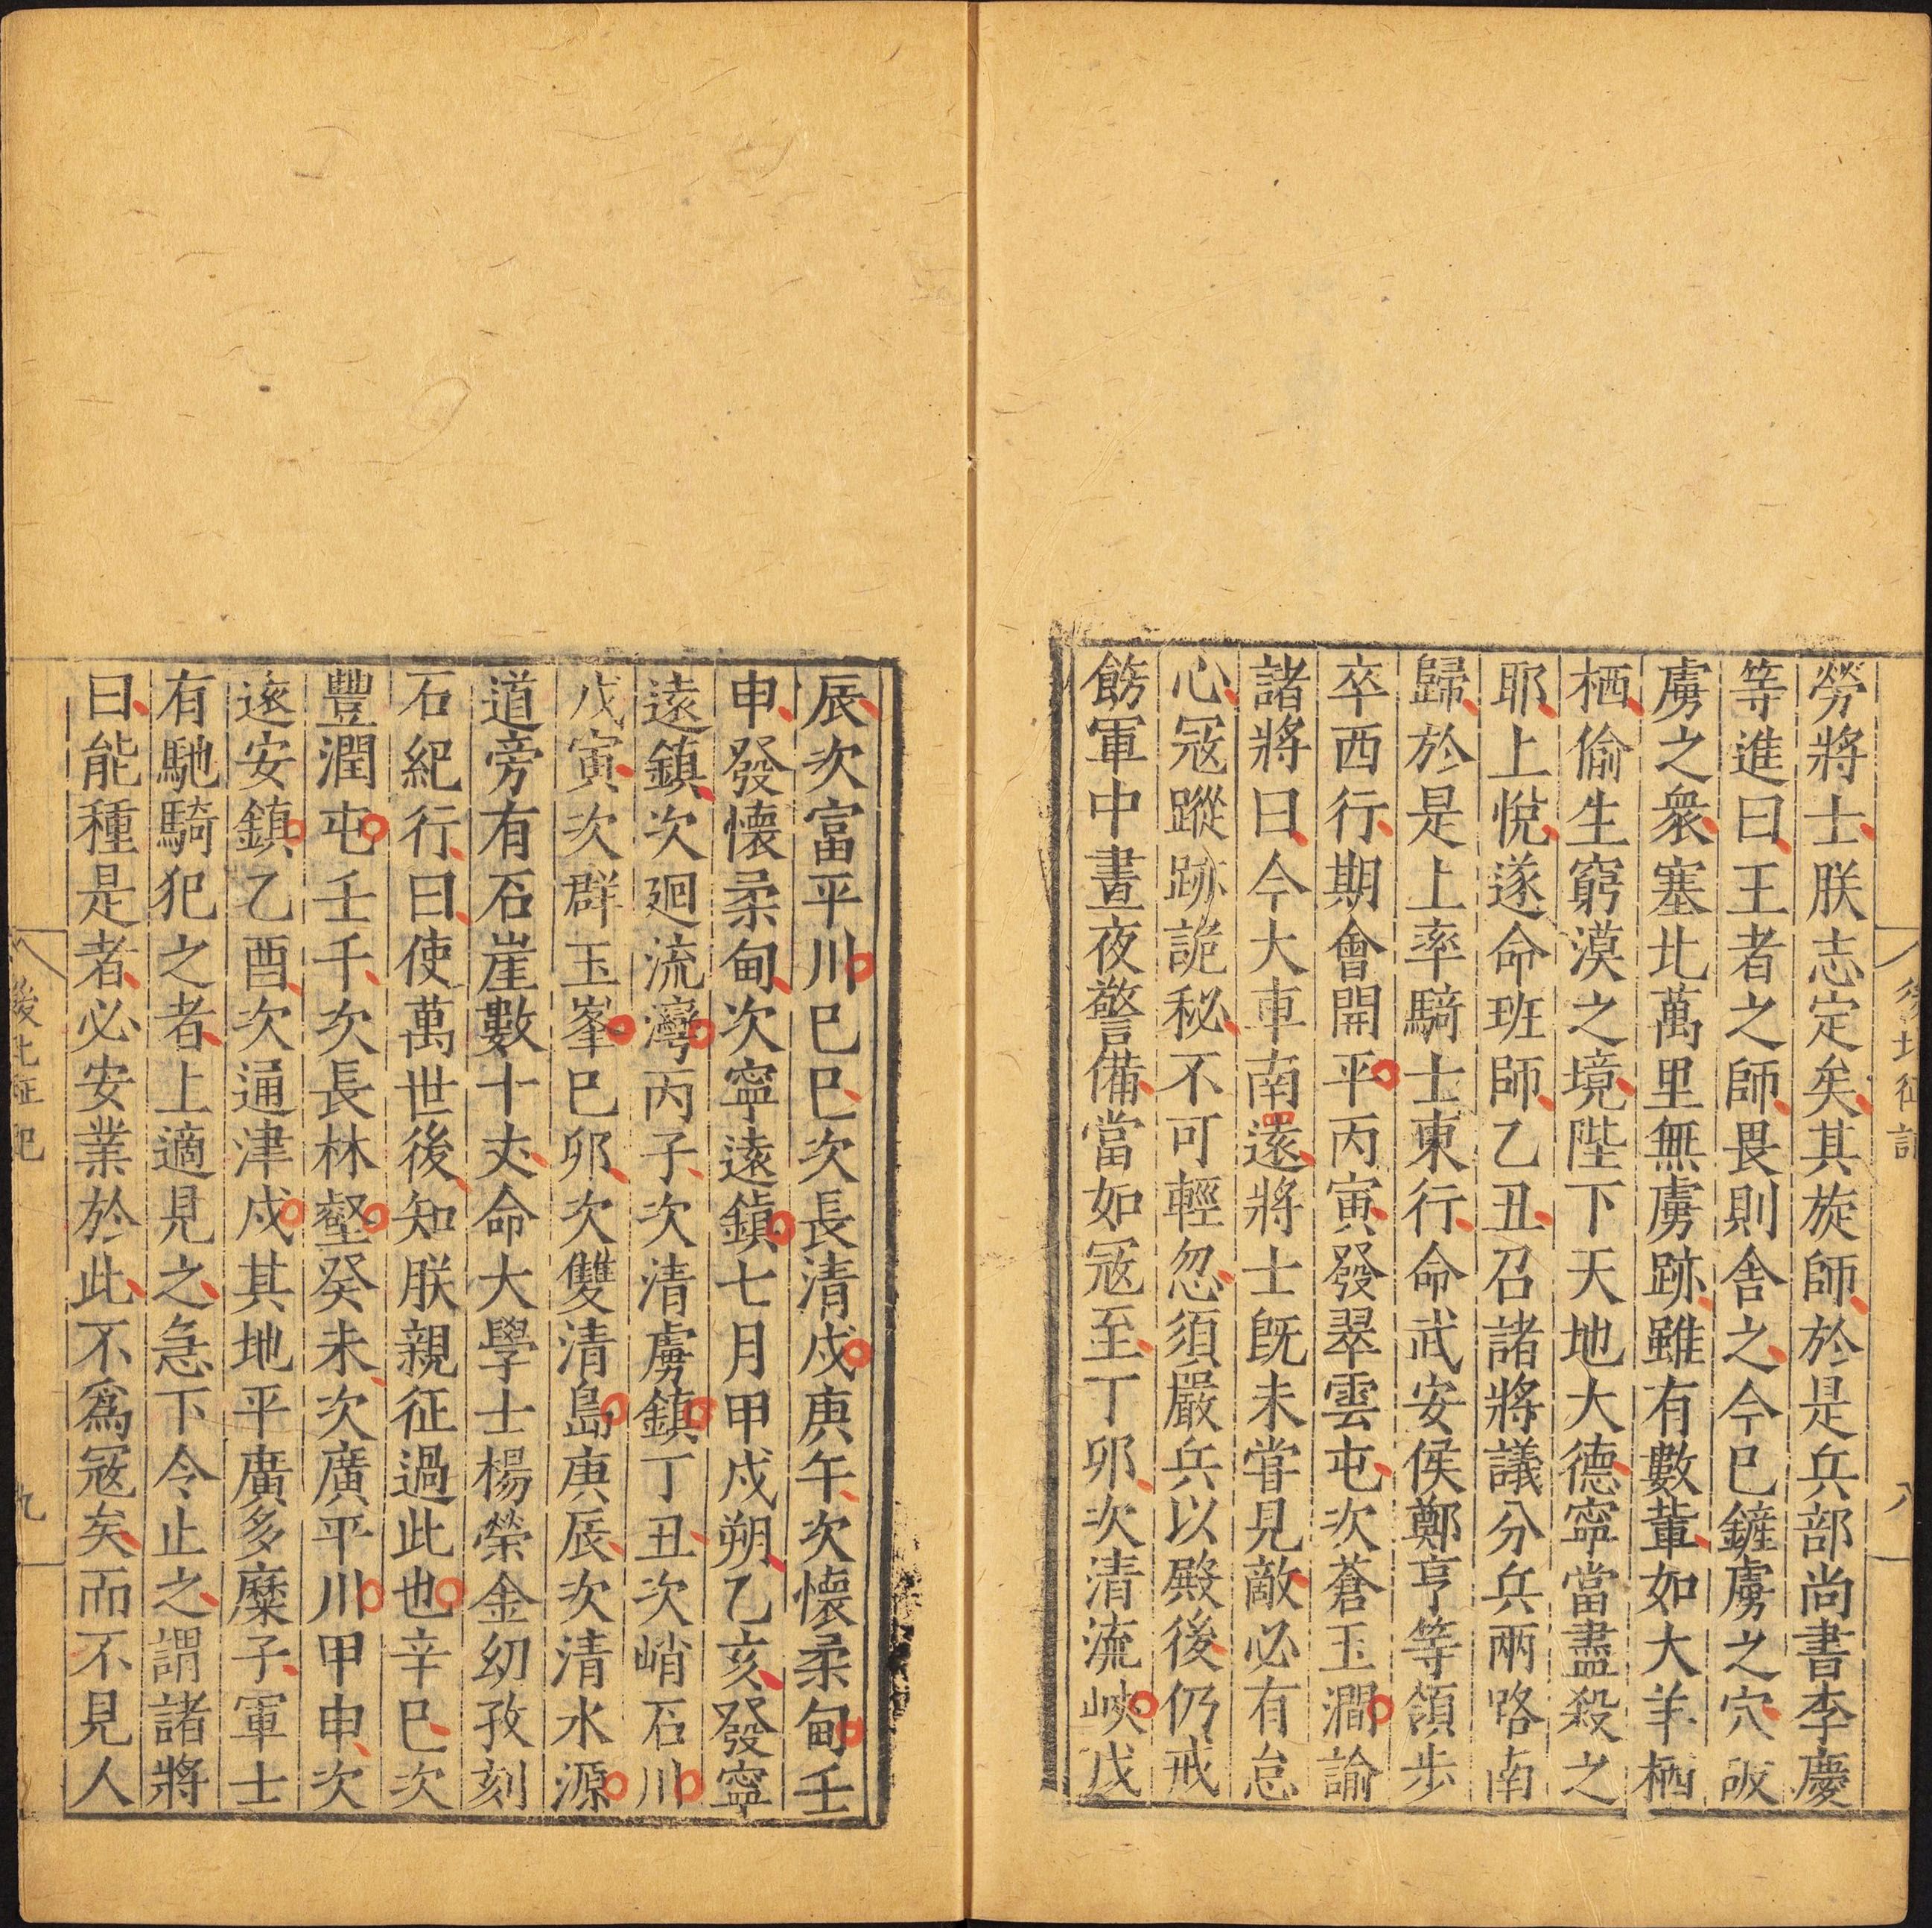 勞將士朕志定矣其旋師於是兵部尚書李慶
等進曰王者之師畏則舍之今巳鏟虜之穴破
虜之衆塞北萬里無虜跡雖有數輩如犬羊栖
栖偷生窮漠之境陛下天地大德寧當盡殺之
耶上悅遂命班師乙丑召諸將議分兵兩路南
歸於是上率騎士東行命武安侯鄭亨等領步
卒西行期會開平丙寅發翠雲屯次蒼玉澗諭
諸將曰今大軍南還將士旣未甞見敵必有怠
心冦蹤跡詭秘不可輕忽須嚴兵以殿後仍戒
飭軍中晝夜警備當如冦至丁卯次清流峽戊
後北征記
八
辰次富平川巳巳次長清戍庚午次懷柔甸壬
申發懷柔甸次寧遠鎮七月甲戌朔乙亥發寧
遠鎮次廻流灣丙子次清虜鎮丁丑次峭石川
戊寅次群玉峯巳卯次雙清島庚辰次清水源
道旁有石崖數十丈命大學士楊榮金幼孜刻
石紀行曰使萬世後知朕親征過此也辛巳次
豐潤屯壬午次長林壑癸未次廣平川甲申次
遂安鎮乙酉次通津戍其地平廣多糜子軍士
有馳騎犯之者上適見之急下令止之謂諸將
曰能種是者必安業於此不爲冦矣而不見人
後北征記
九